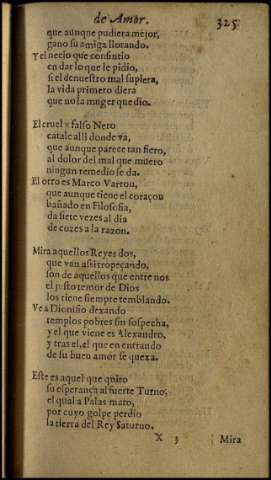 de Amor. 325
que aunque pudiera mejor,
gano su amiga llorando.
Y el necio que consintio
en dar lo que le pidio,
si el denuestro mal supiera,
la vida primero diera
que no la muger que dio.
El cruel y falso Nero
catale alli donde va,
que aunque parece tan fiero,
al dolor del mal que muero
ningun remedio se da.
El otro es Marco Varron,
que aunque tiene el coraçon
bañado en Filosofia,
da siete vezes al dia
de cozes a la razon.
Mira aquellos Reyes dos,
que van assi tropeçando,
son de aquellos que entre nos
el justo temor de Dios
los tiene siempre temblando.
Ve a Dionisio dexando
templos pobres sin sospecha,
y el que viene es Alexandro,
y tras el, el que en entrando
de su buen amor se quexa.
Este es aquel que quito
su esperança al fuerte Turno,
el qual a Palas mato,
por cuyo golpe perdio
la tierra del Rey Saturno.
X 3 Mira